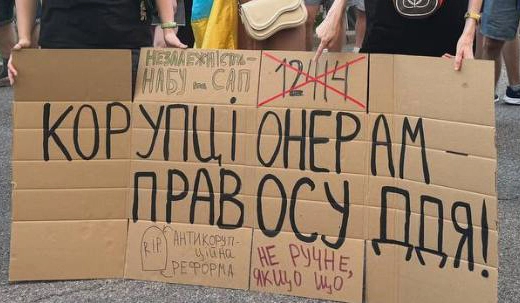 НЕЗАЛЕЖНІСТЬ
НАБУ та САП
12414
КОРУПЦІОНЕРАМ –
ПРАВОСУДДЯ!
RIP
АНТИКОРУП-
ЦІЙНА
РЕФОРМА
НЕ РУЧНЕ,
ЯКЩО ЩО